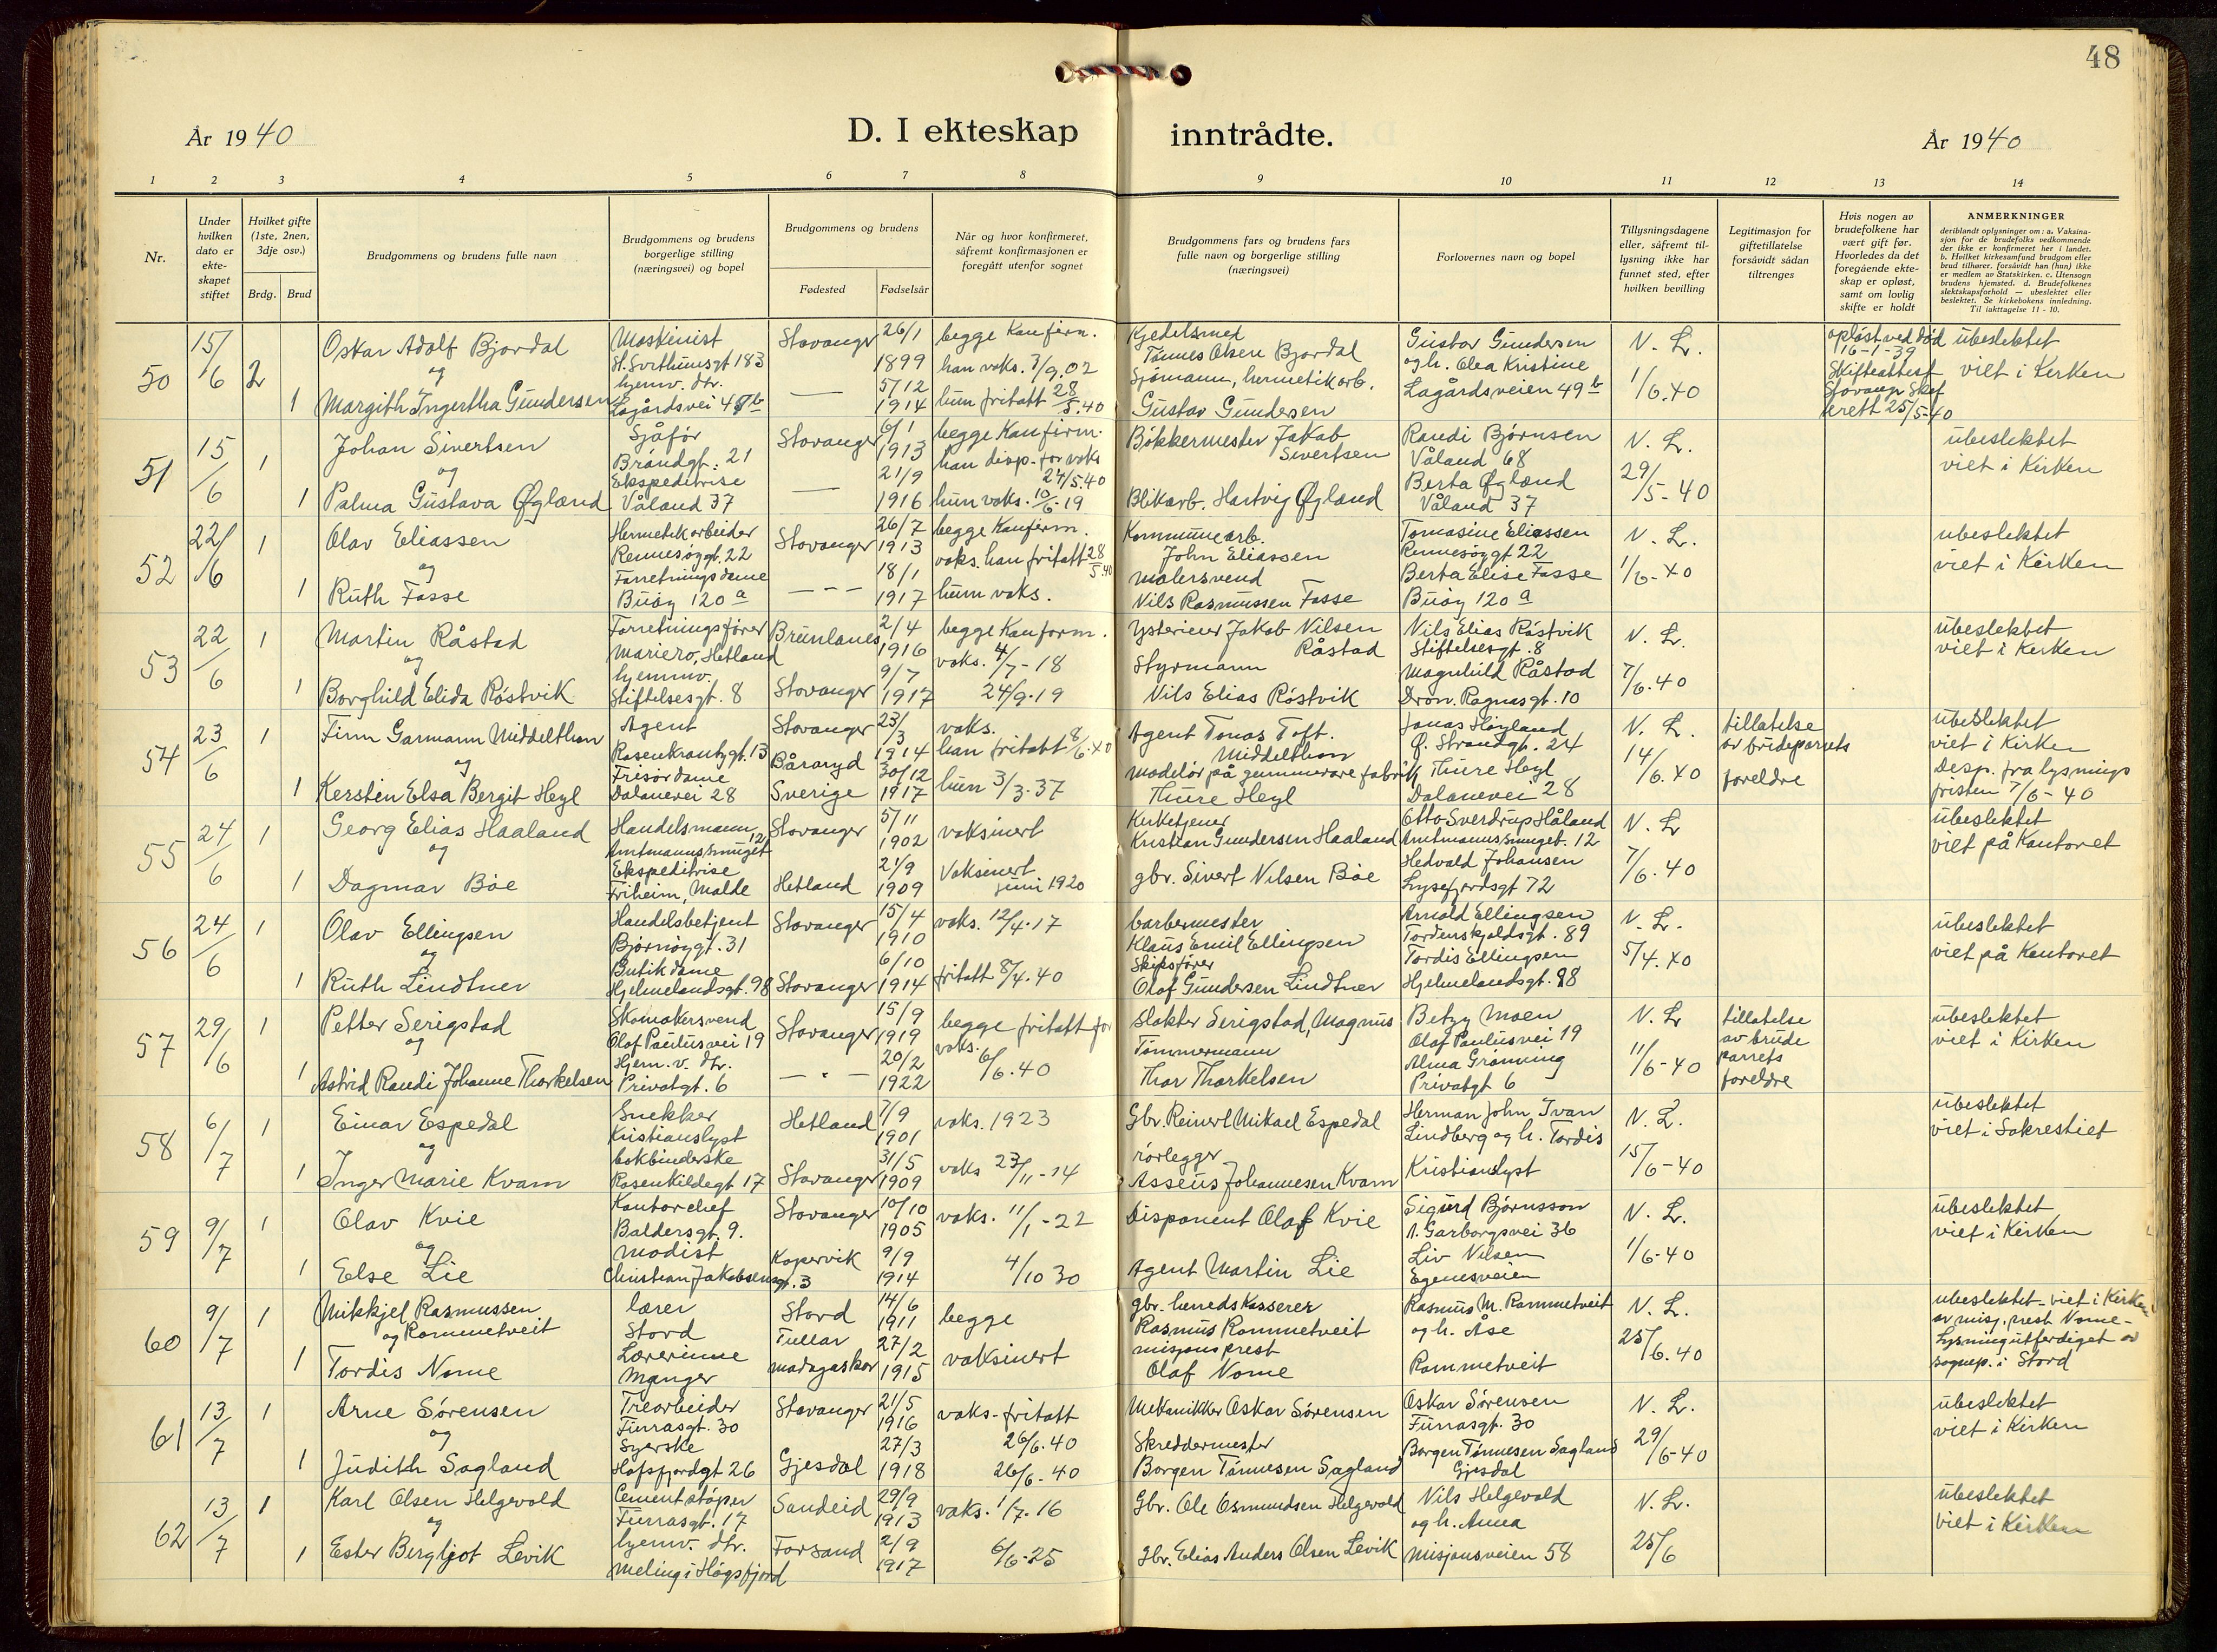 48
År 1940
D. I ekteskap inntrådte.
År 1940
1 2 3 4 5 6 7 8 9 10 11 12 13 14
Nr.
Under hvilken dato er ekteskapet stiftet
Hvilket gifte (1ste, 2nen, 3dje osv.)
Brdg. Brud
Brudgommens og brudens fulle navn
Brudgommens og brudens borgerlige stilling (næringsvei) og bopel
Brudgommens og brudens
Fødested Fødselsår
Når og hvor konfirmeret, såfremt konfirmasjonen er foregått utenfor sognet
Brudgommens fars og brudens fars fulle navn og borgerlige stilling (næringsvei)
Forlovernes navn og bopel
Tillysningsdagene eller, såfremt tillysning ikke har funnet sted, efter hvilken bevilling
Legitimasjon for giftetillatelse forsåvidt sådan tiltrenges
Hvis nogen av brudefolkene har vært gift før. Hvorledes da det foregående ekteskap er opløst, samt om lovlig skifte er holdt
ANMERKNINGER
deriblandt oplysninger om: a. Vaksinasjon for de brudefolks vedkommende der ikke er konfirmeret her i landet. b. Hvilket kirkesamfund brudgom eller brud tilhører, forsåvidt han (hun) ikke er medlem av Statskirken. c. Utensogn brudens hjemsted. d. Brudefolkenes slektskapsforhold — ubeslektet eller beslektet. Se kirkebokens innledning. Til iakttagelse 11 - 10.
50 15/6 2 Oskar Adolf Bjordal Maskinist St. Svithunsgt 183 Stavanger 26/1 1899 begge Konfirm. han vaks. 7/9.02 Kjedelsmed Tønnes Olsen Bjordal Gustav Gundersen og h. Olea Kristine N. L. opløst ved død 16-1-39 ubeslektet
og
1 Margith Ingertha Gundersen hjemv. dtr. Lagårdsvei 49b — 5/12 1914 hun fritatt 28/5.40 Sjømann, hermetikarb. Gustav Gundersen Lagårdsveien 49b 1/6.40 Skifteattest Stavanger Skifterett 25/5-40 viet i Kirken
51 15/6 1 Johan Sivertsen Sjåfør Brandgt. 21 Stavanger 6/1 1913 begge Konfirm. han disp. for vaks 24/5.40 Bøkkermester Jakob Sivertsen Randi Bjørnsen Våland 68 N. L. ubeslektet
og
1 Palma Gustava Øgland Ekspeditrise Våland 37 — 21/9 1916 hun vaks. 10/6-19 Blikarb. Hartvig Øgland Berta Øgland Våland 37 29/5-40 viet i Kirken
52 22/6 1 Olav Eliassen Hermetikarbeider Rennesøygt. 22 Stavanger 26/7 1913 begge Konfirm. vaks. han fritatt 28/5.40 Kommunearb. John Eliassen Tomasine Eliassen Rennesøygt 22 N. L. ubeslektet
og
1 Ruth Fosse Forretningsdame Buøy 120a — 18/1 1917 hun vaks. malersvend Nils Rasmussen Fosse Berta Elise Fosse Buøy 120a 1/6-40 viet i Kirken
53 22/6 1 Martin Råstad Forretningsfører Mariero, Hetland Brunlanes 2/4 1916 begge Konform. vaks. 4/7-18 Ysterieier Jakob Nilsen Råstad Nils Elias Røstvik Stiftelsesgt. 8 N. L. ubeslektet
og
1 Borghild Elida Røstvik hjemmv. Stiftelsesgt. 8 Stavanger 9/7 1917 24/9-19 Styrmann Nils Elias Røstvik Magnhild Råstad Dron. Ragnasgt. 10 7/6.40 viet i Kirken
54 23/6 1 Finn Garmann Middelthon Agent Rosenkrantzgt. 13 Stavanger 23/3 1914 vaks. han fritatt 8/6.40 Agent Tonas Toft. Middelthon Jonas Høyland Ø. Strandgt. 24 N. L. tillatelse av brudeparrets foreldre ubeslektet
og
1 Kersten Elsa Bergit Heyl Frisørdame Dalanevei 28 Båraryd Sverige 30/12 1917 hun 3/3-37 modelør på gummivarefabrik Thure Heyl Thure Heyl Dalanevei 28 14/6.40 viet i Kirken Disp. fra lysnings fristen 7/6-40
55 24/6 1 Georg Elias Haaland Handelsmann Amtmannssmuget 12 Stavanger 5/11 1902 vaksinert Kirketjener Kristian Gundersen Haaland Otto Sverdrup Håland Amtmannssmuget. 12 N. L ubeslektet
og
1 Dagmar Bøe Ekspeditrise Friheim, Malde Hetland 21/9 1909 Vaksinert juni 1920 gbr. Sivert Nilsen Bøe Hedvald Johansen Lysefjordsgt 72 7/6.40 viet på Kontoret
56 24/6 1 Olav Ellingsen Handelsbetjent Bjørnøygt. 31 Stavanger 15/4 1910 vaks. 12/4-17 barbermester Klaus Emil Ellingsen Arnold Ellingsen Tordenskjoldsgt. 89 N. L. ubeslektet
og
1 Ruth Lindtner Butikdame Hjelmelandsgt. 98 Stavanger 6/10 1914 fritatt 8/4.40 Skipsfører Olaf Gundersen Lindtner Tordis Ellingsen Hjelmelandsgt. 98 5/4.40 viet på Kontoret
57 29/6 1 Petter Serigstad Skomakersvend Olaf Paulusvei 19 Stavanger 15/9 1919 begge fritatt for vaks. Slakter Serigstad, Magnus Betzy Moen Olaf Paulusvei 19 N. L tillatelse av brude parrets foreldre ubeslektet
og
1 Astrid Randi Johanne Thorkelsen Hjem. v. dtr. Privatgt. 6 — 20/2 1922 6/6.40 Tømmermann Thor Thorkelsen Alma Grønning Privatgt 6 11/6-40 viet i Kirken
58 6/7 1 Einar Espedal Snekker Kristianslyst Hetland 7/9 1901 vaks. 1923 Gbr. Reinert Mikael Espedal Herman John Ivan Lindberg og h. Tordis N. L. ubeslektet
og
1 Inger Marie Kvam bokbinderske Rosenkildegt 17 Stavanger 31/5 1909 vaks 23/11-14 rørlegger Asseus Johannesen Kvam Kristianslyst 15/6-40 viet i Sakrestiet
59 9/7 1 Olav Kvie Kontorchef Baldersgt. 9. Stavanger 10/10 1905 vaks. 11/1-22 Disponent Olaf Kvie Sigurd Bjørnsson A. Garborgsvei 36 N. L. ubeslektet
og
1 Else Lie Modist Christian Jakobsensgt. 3 Kopervik 9/9 1914 4/10 30 Agent Martin Lie Liv Nilsen Egenesveien 1/6-40 viet i Kirken
60 9/7 1 Mikkjel Rasmussen Rommetveit lærer Stord Stord 14/6 1911 begge gbr. herredskasserer Rasmus Rommetveit Rasmus M. Rommetveit og h. Åse N. L. ubeslektet - viet i Kirken av misj. prest Nome -
og
1 Tordis Nome Lærerinne Manger Tullar Madagaskar 27/2 1915 vaksinert misjonsprest Olaf Nome Rommetveit 25/6.40 Lysning utferdiget av sognep. i Stord
61 13/7 1 Arne Sørensen Trearbeider Furrasgt. 30 Stavanger 21/5 1916 vaks-fritatt 26/6.40 Mekanikker Oskar Sørensen Oskar Sørensen Furrasgt. 30 N. L. ubeslektet
og
1 Judith Sagland Syerske Hafsfjordgt 26 Gjesdal 27/3 1918 26/6-40 Skreddermester Borgen Tønnesen Sagland Borgen Tønnesen Sagland Gjesdal 29/6-40 viet i Kirken
62 13/7 1 Karl Olsen Helgevold Cementstøper Furrasgt. 17 Sandeid 29/9 1913 vaks. 1/7-16 Gbr. Ole Osmundsen Helgevold Nils Helgevold og h. Anna N. L. ubeslektet
og
1 Ester Bergljot Levik hjemv. dtr. Meling i Høgsfjord Forsand 2/9 1917 6/6-25 gbr. Elias Anders Olsen Levik Misjonsveien 58 25/6 viet i Kirken